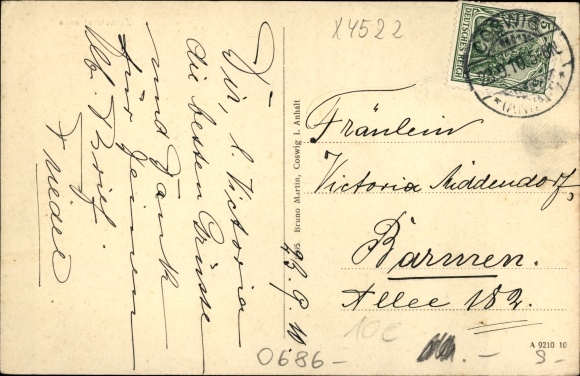 X4522
Dir, l. Victoria
die besten Grüsse
und Dank
für Deinen
lb. Brief.
Friedel.
23.9.10
95. Bruno Martin, Coswig i. Anhalt
DEUTSCHES REICH
5
COSWIG
(ANHALT)
Fräulein
Victoria Middendorf,
Barmen.
Allee 182.
A 9210 10
0686-
10€
9-